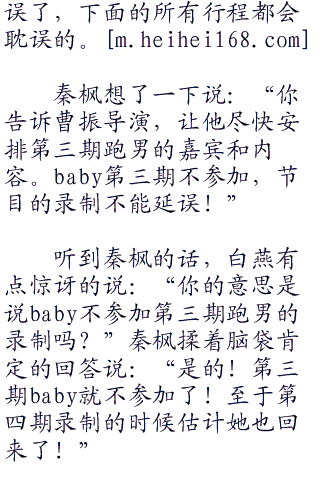 误了，下面的所有行程都会
耽误的。[m.heihei168.com]
秦枫想了一下说：“你
告诉曹振导演，让他尽快安
排第三期跑男的嘉宾和内
容。baby第三期不参加，节
目的录制不能延误！”
听到秦枫的话，白燕有
点惊讶的说：“你的意思是
说baby不参加第三期跑男的
录制吗？”秦枫揉着脑袋肯
定的回答说：“是的！第三
期baby就不参加了！至于第
四期录制的时候估计她也回
来了！”